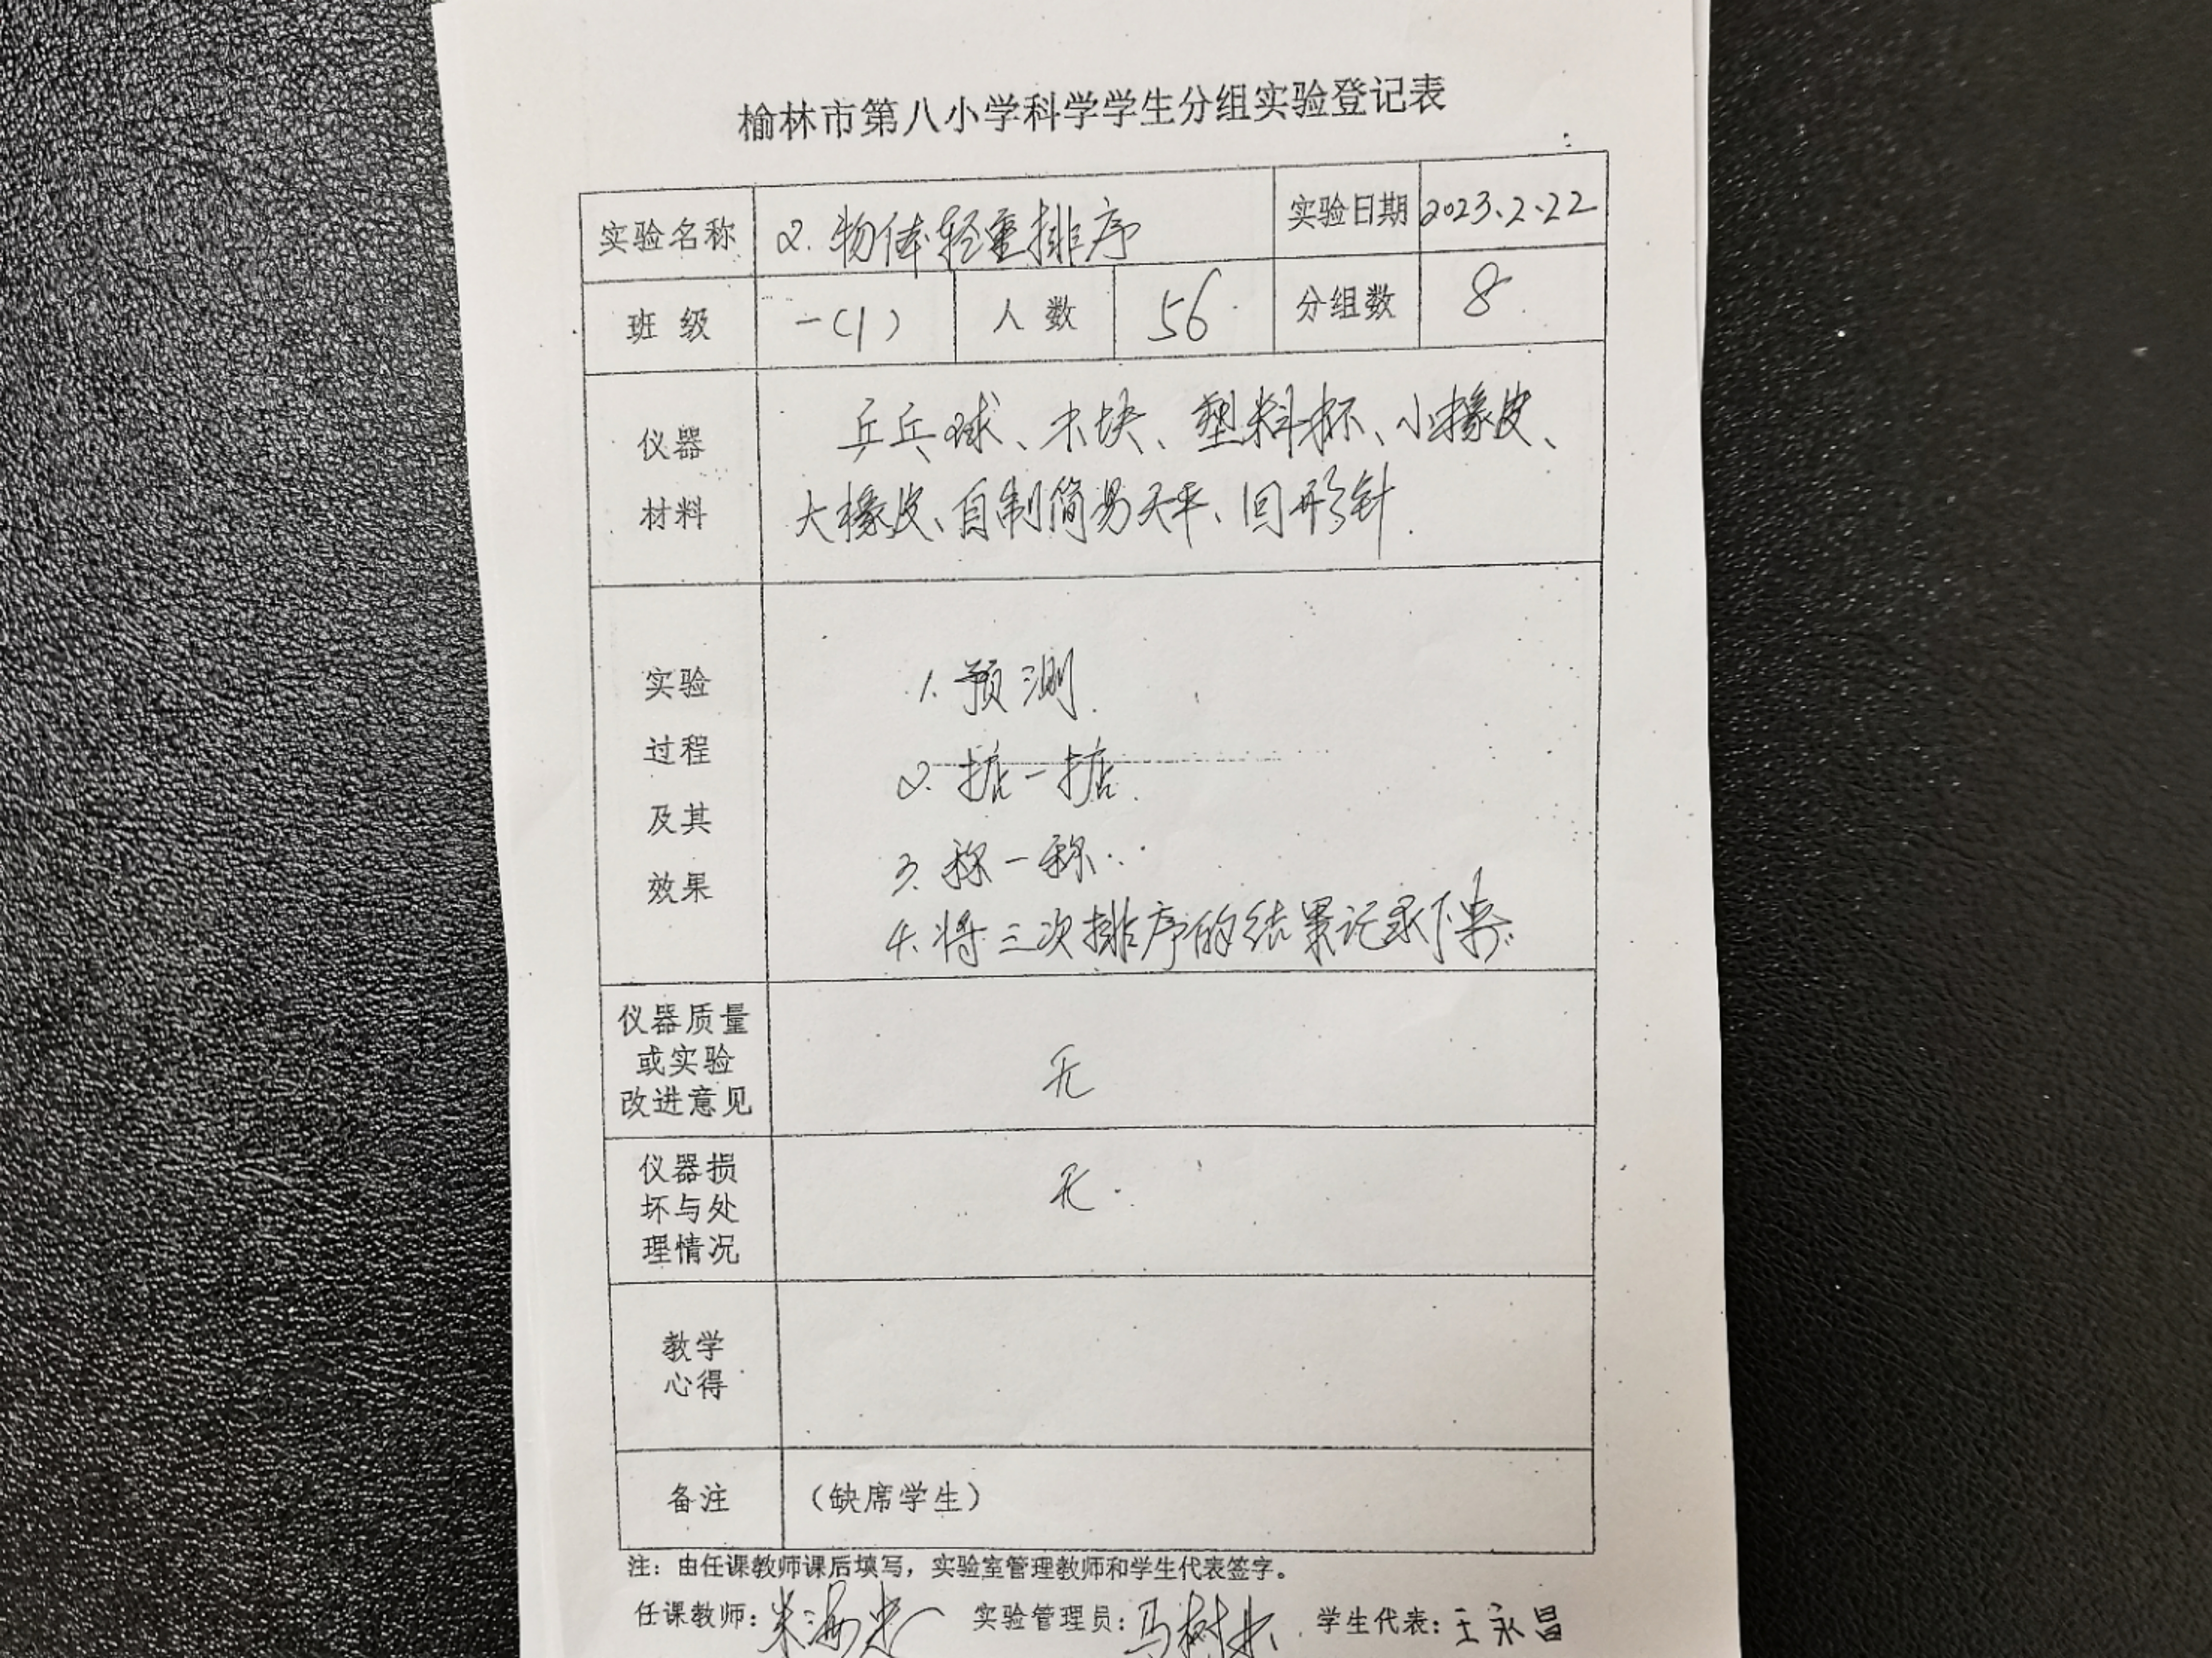 榆林市第八小学科学学生分组实验登记表
实验名称 2.物体轻重排序 实验日期 2023.2.22
班级 一(1) 人数 56 分组数 8
仪器
材料
乒乓球、木块、塑料杯、小橡皮、
大橡皮、自制简易天平、回形针.
实验
过程
及其
效果
1.预测.
2.掂一掂.
3.称一称.
4.将三次排序的结果记录下来.
仪器质量
或实验
改进意见
无
仪器损
坏与处
理情况
无.
教学
心得
备注 (缺席学生)
注:由任课教师课后填写,实验室管理教师和学生代表签字。
任课教师: 实验管理员:马树 学生代表:王永昌